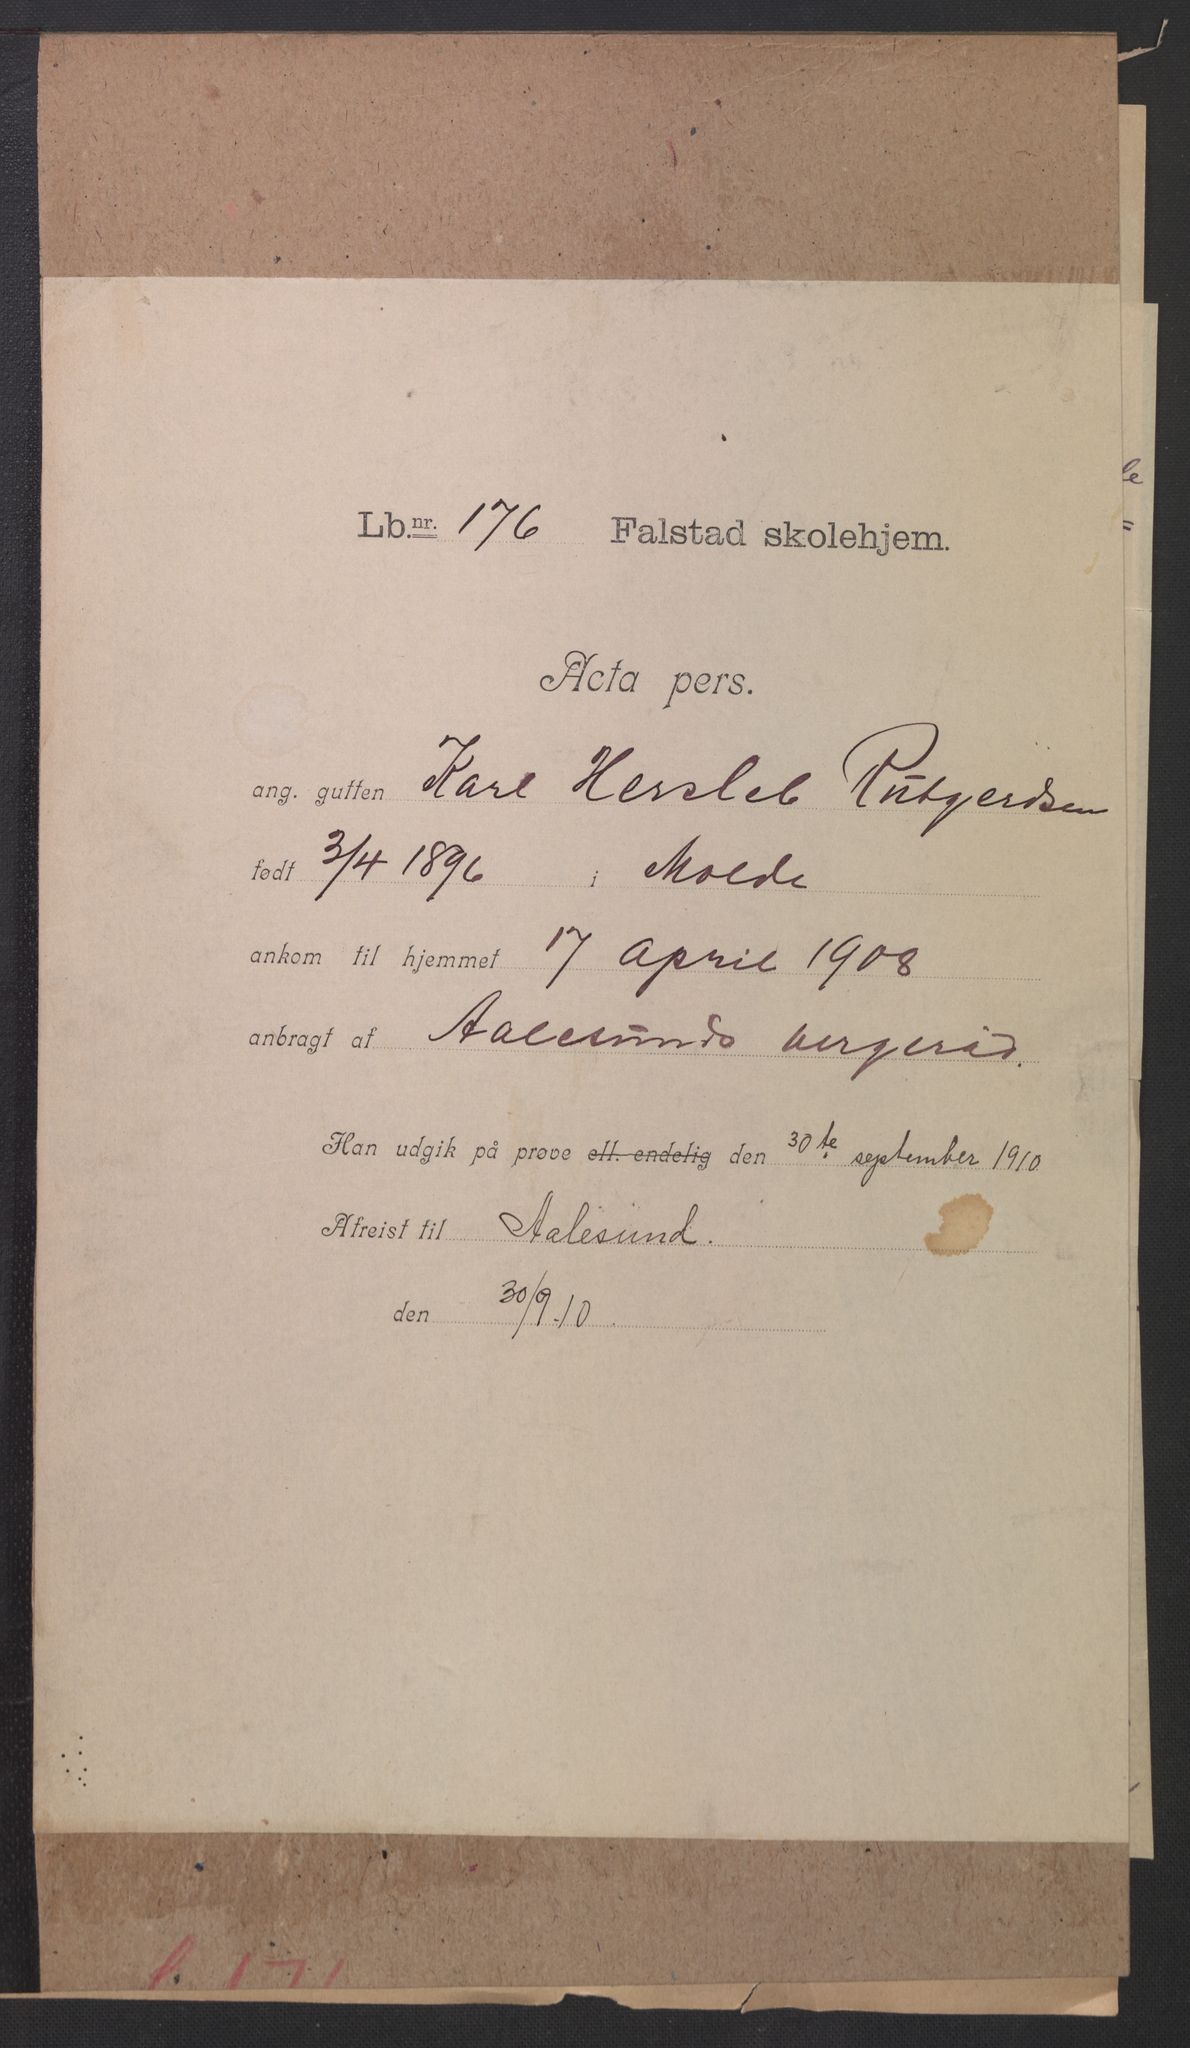 Lb.nr. 176 Falstad skolehjem.
Acta pers.
ang. gutten Karl Hersleb Rütgerdsen
født 3/4 1896 i Molde
ankom til hjemmet 17 april 1908
anbragt af Aalesunds vergeråd.
Han udgik på prøve ell. endelig den 30te september 1910
Afreist til Aalesund.
den 30/9.10.